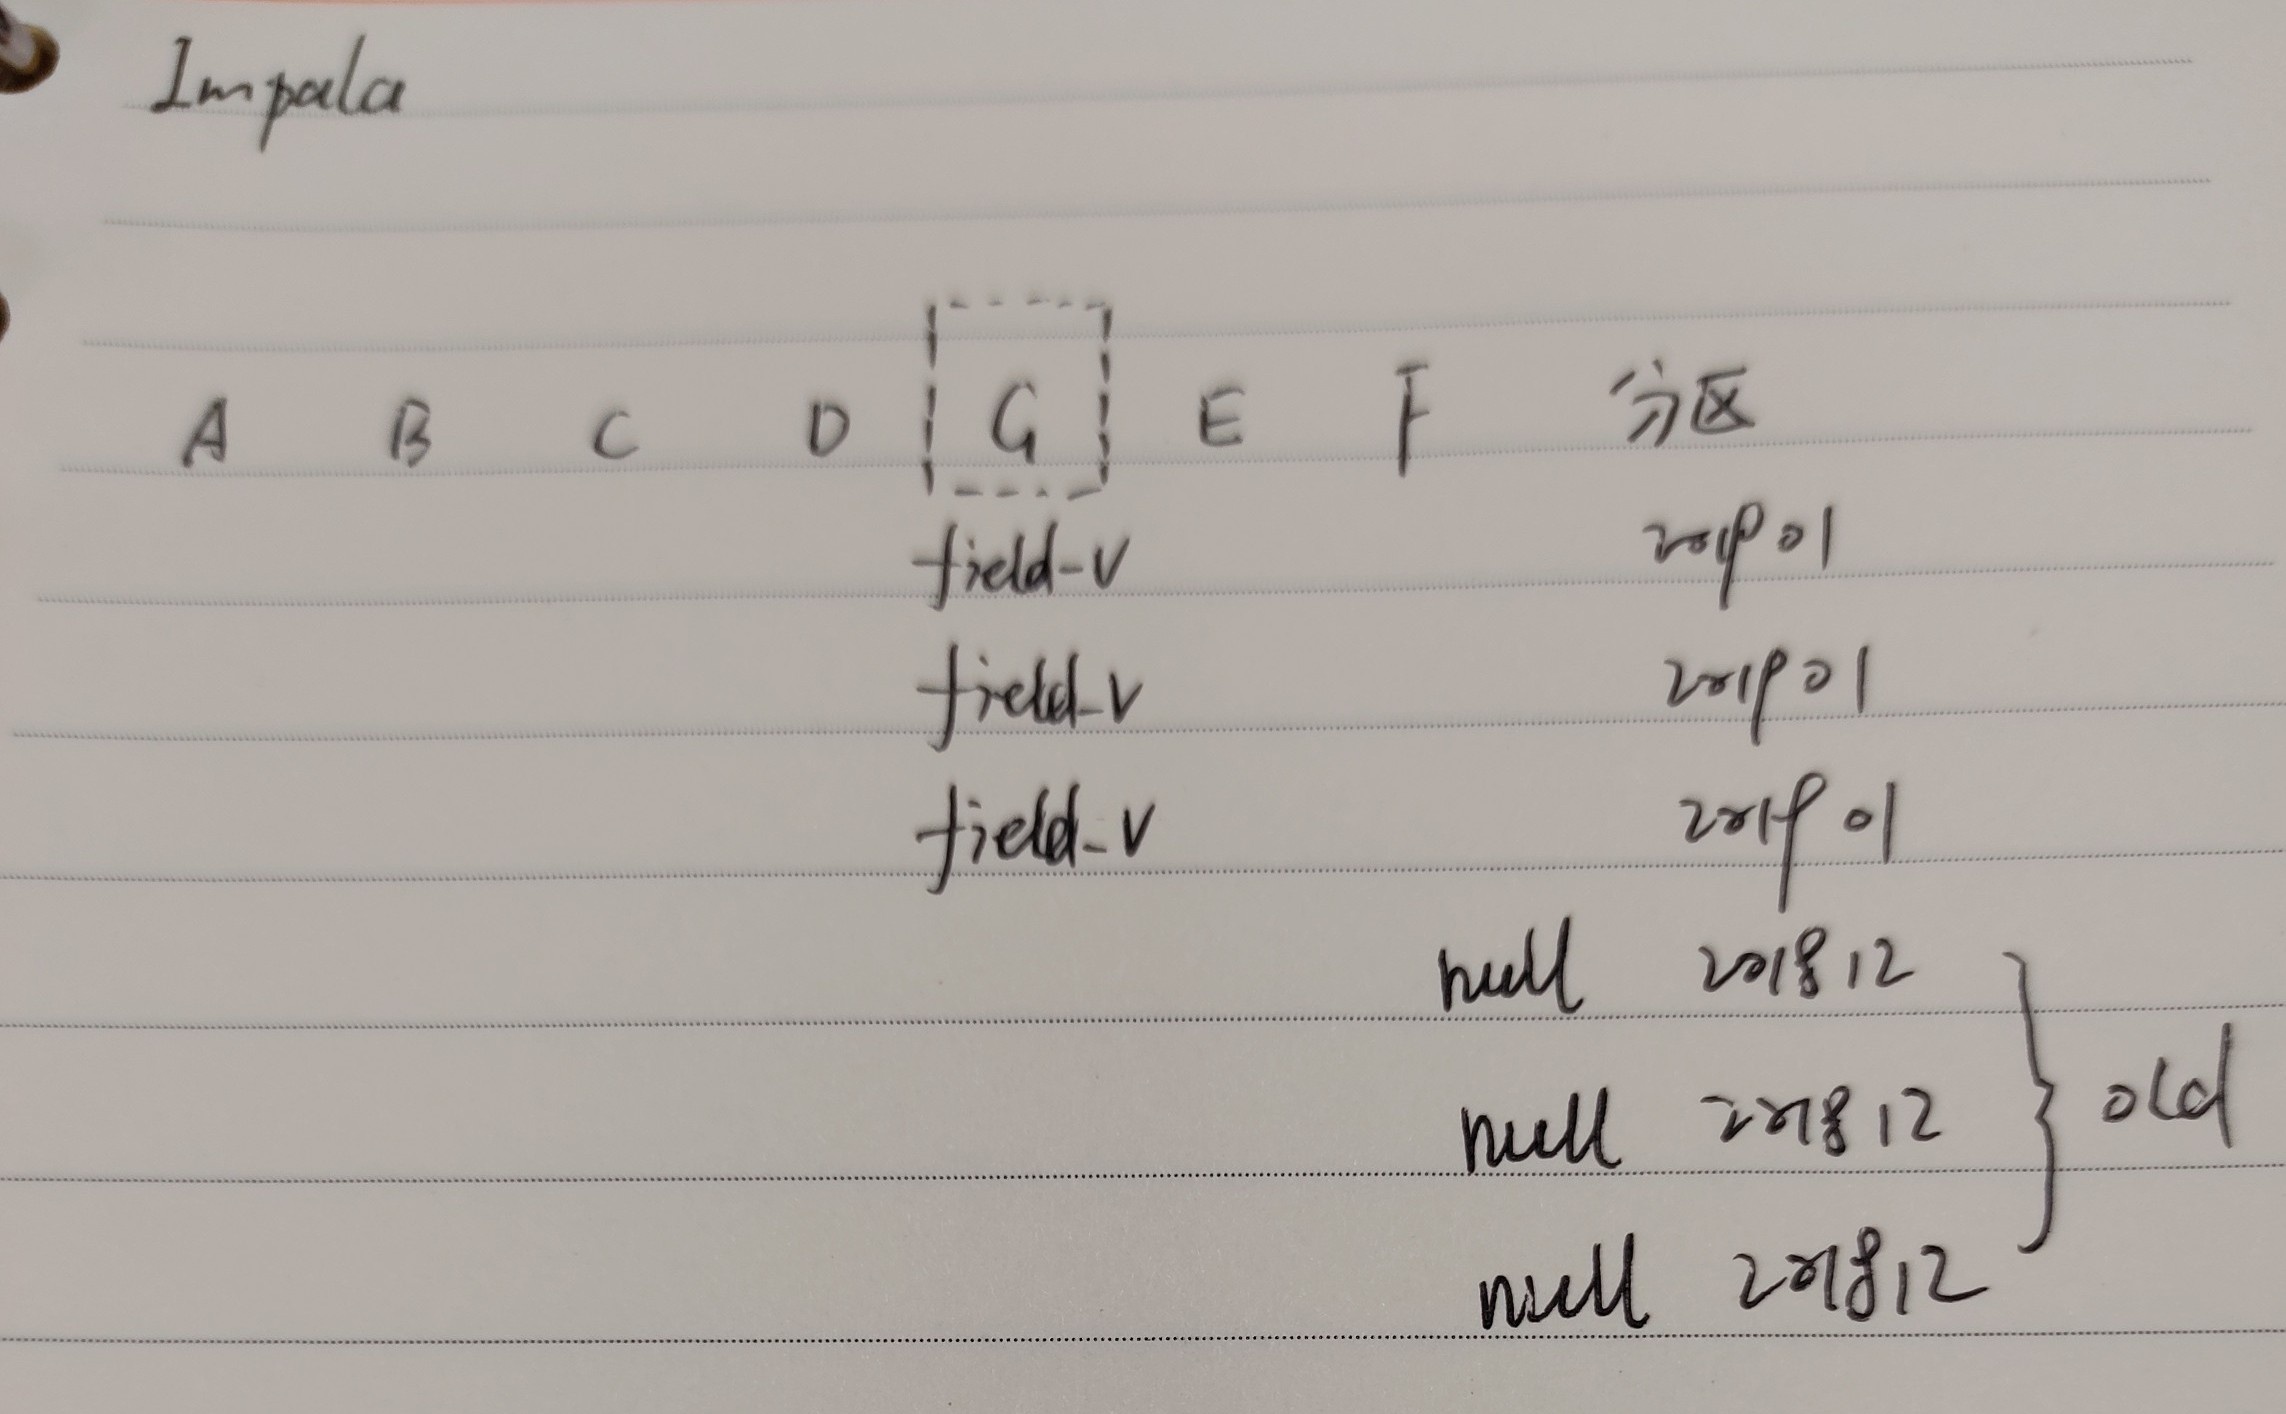 Impala
A B C D G E F 分区
field-v 201901
field-v 201901
field-v 201901
null 201812
null 201812 old
null 201812